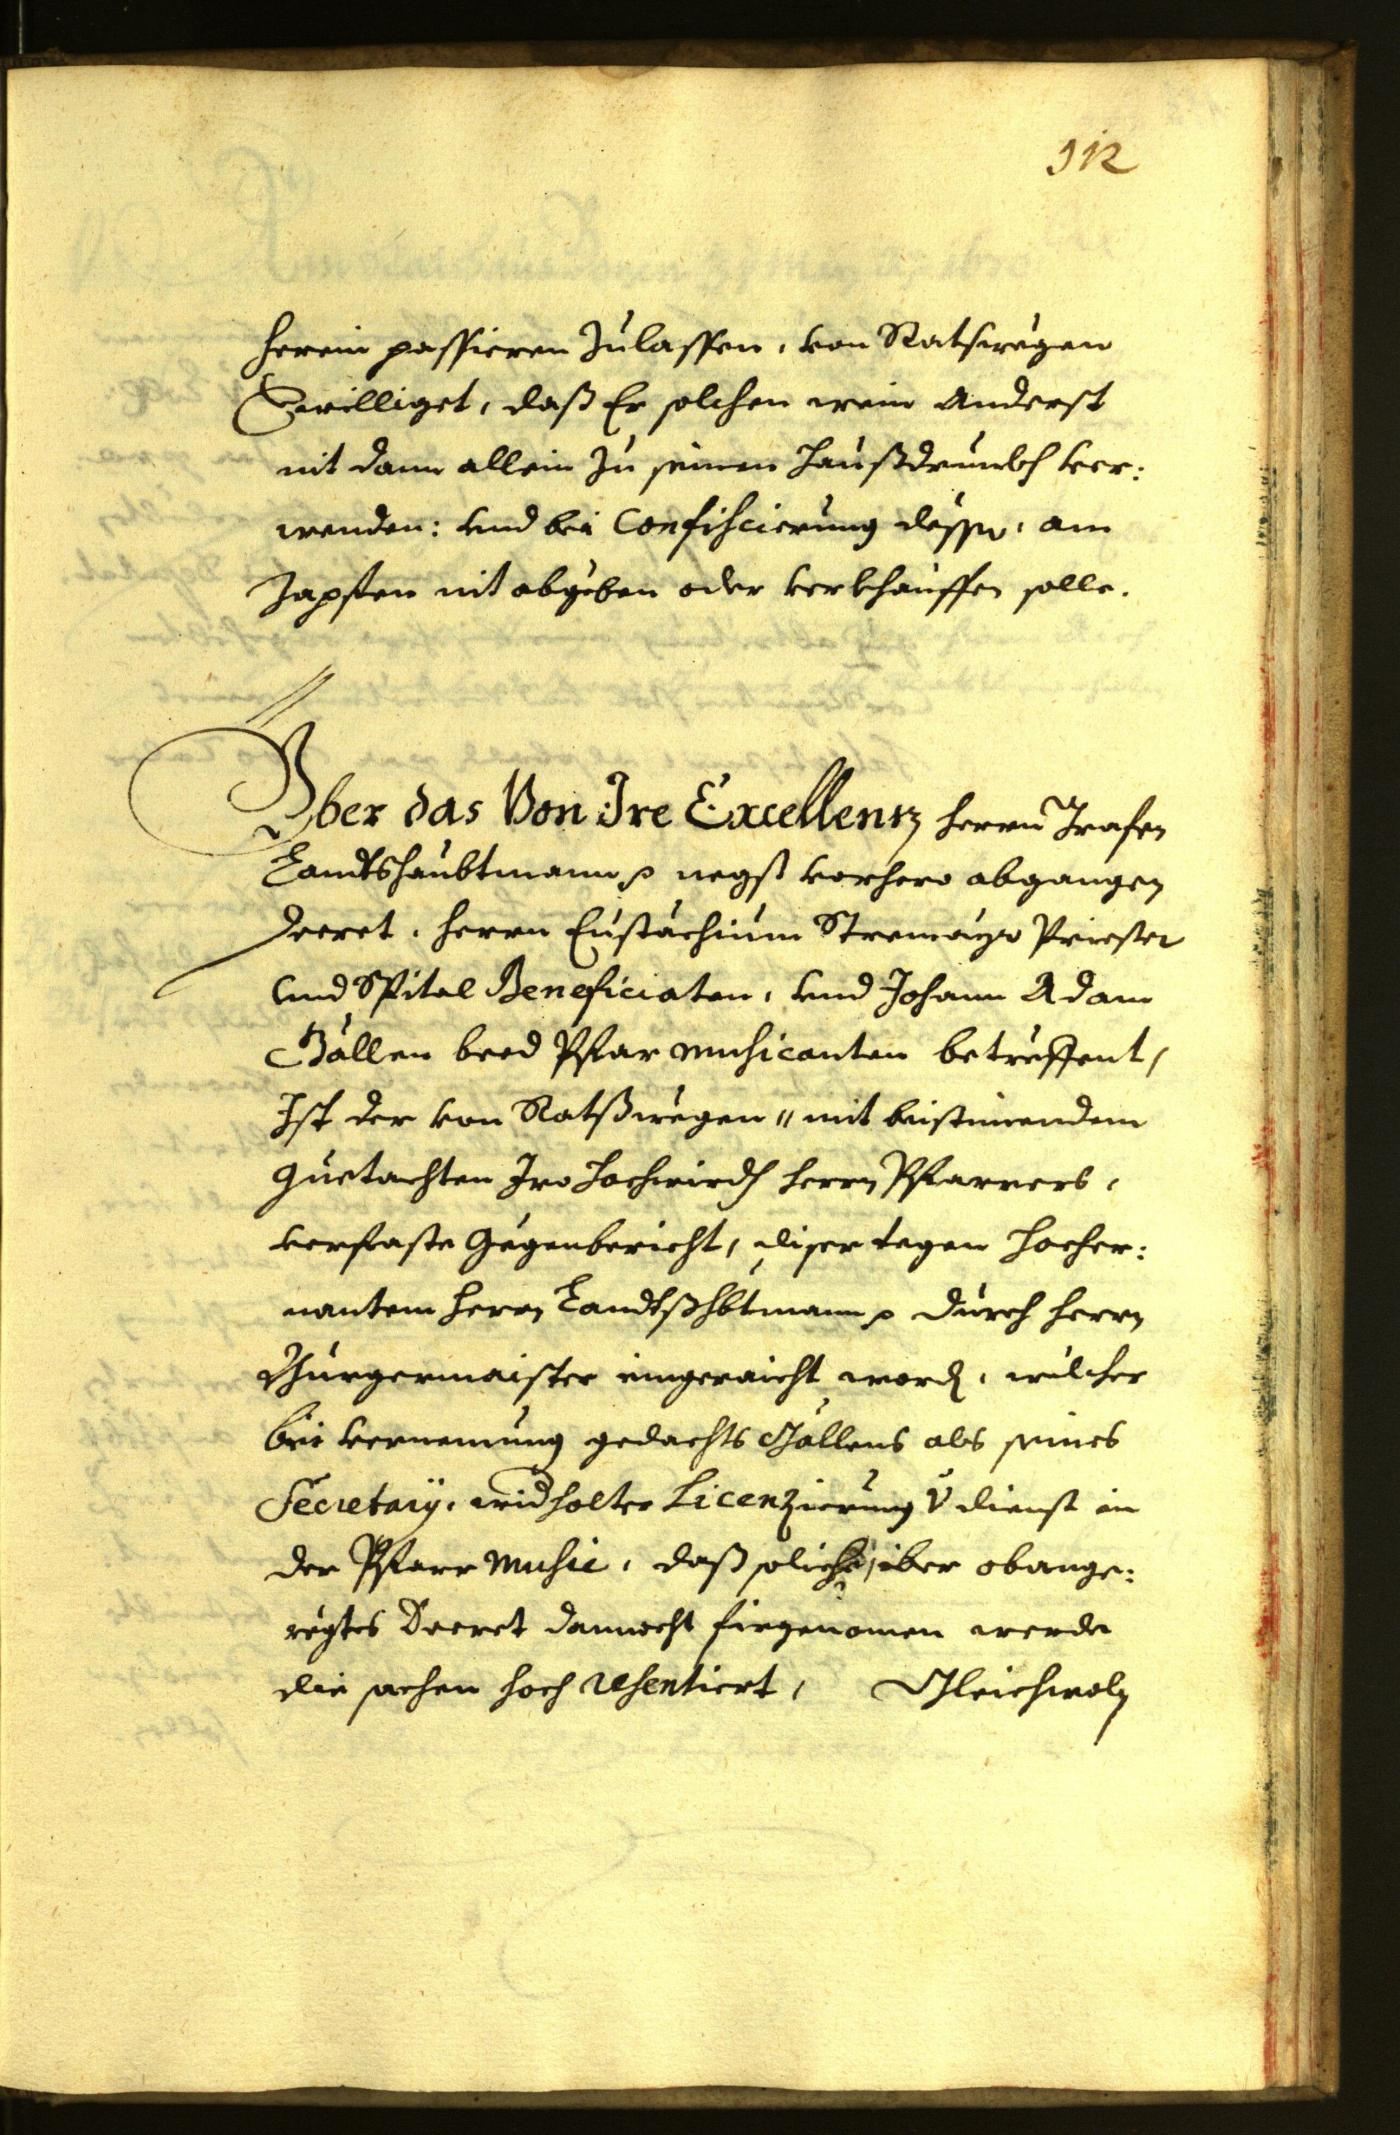 112
herein passieren zulassen, von Ratswegen
Bewilliget, daß Er solchen wein Anderst
nit dann allein zu seinen Haußdrunckh ver:
wenden: vnd bei Confiscierung dessen, am
Zapfen nit abgeben oder verkhauffen solle.
Yber das Von Ire Excellentz herrn Grafen
Landtshaubtmann p negst vorhero abgangen
Decret, herrn Eustachium Stremayr Priester
vnd Spital Beneficiaten, vnd Johann Adam
Gällen beed Pfar musicanten betreffent,
Ist der von Ratßwegen " mit beistimendem
Guetachten Iro Hochwirdt herrn Pfarrers,
verfaste Gegenbericht, diser tagen Hocher:
nantem herrn Landtßhbtmann p durch herrn
Burgermaister eingeraicht worden, welcher
bei vernemung gedachts Gällens als seines
Secretarij, widholter Licenzierung v dienst in
der Pfarr Music, daß solche, iber obange:
regtes Decret dannocht firgenomen werde
die sachen hoch resentiert, Gleichwoln